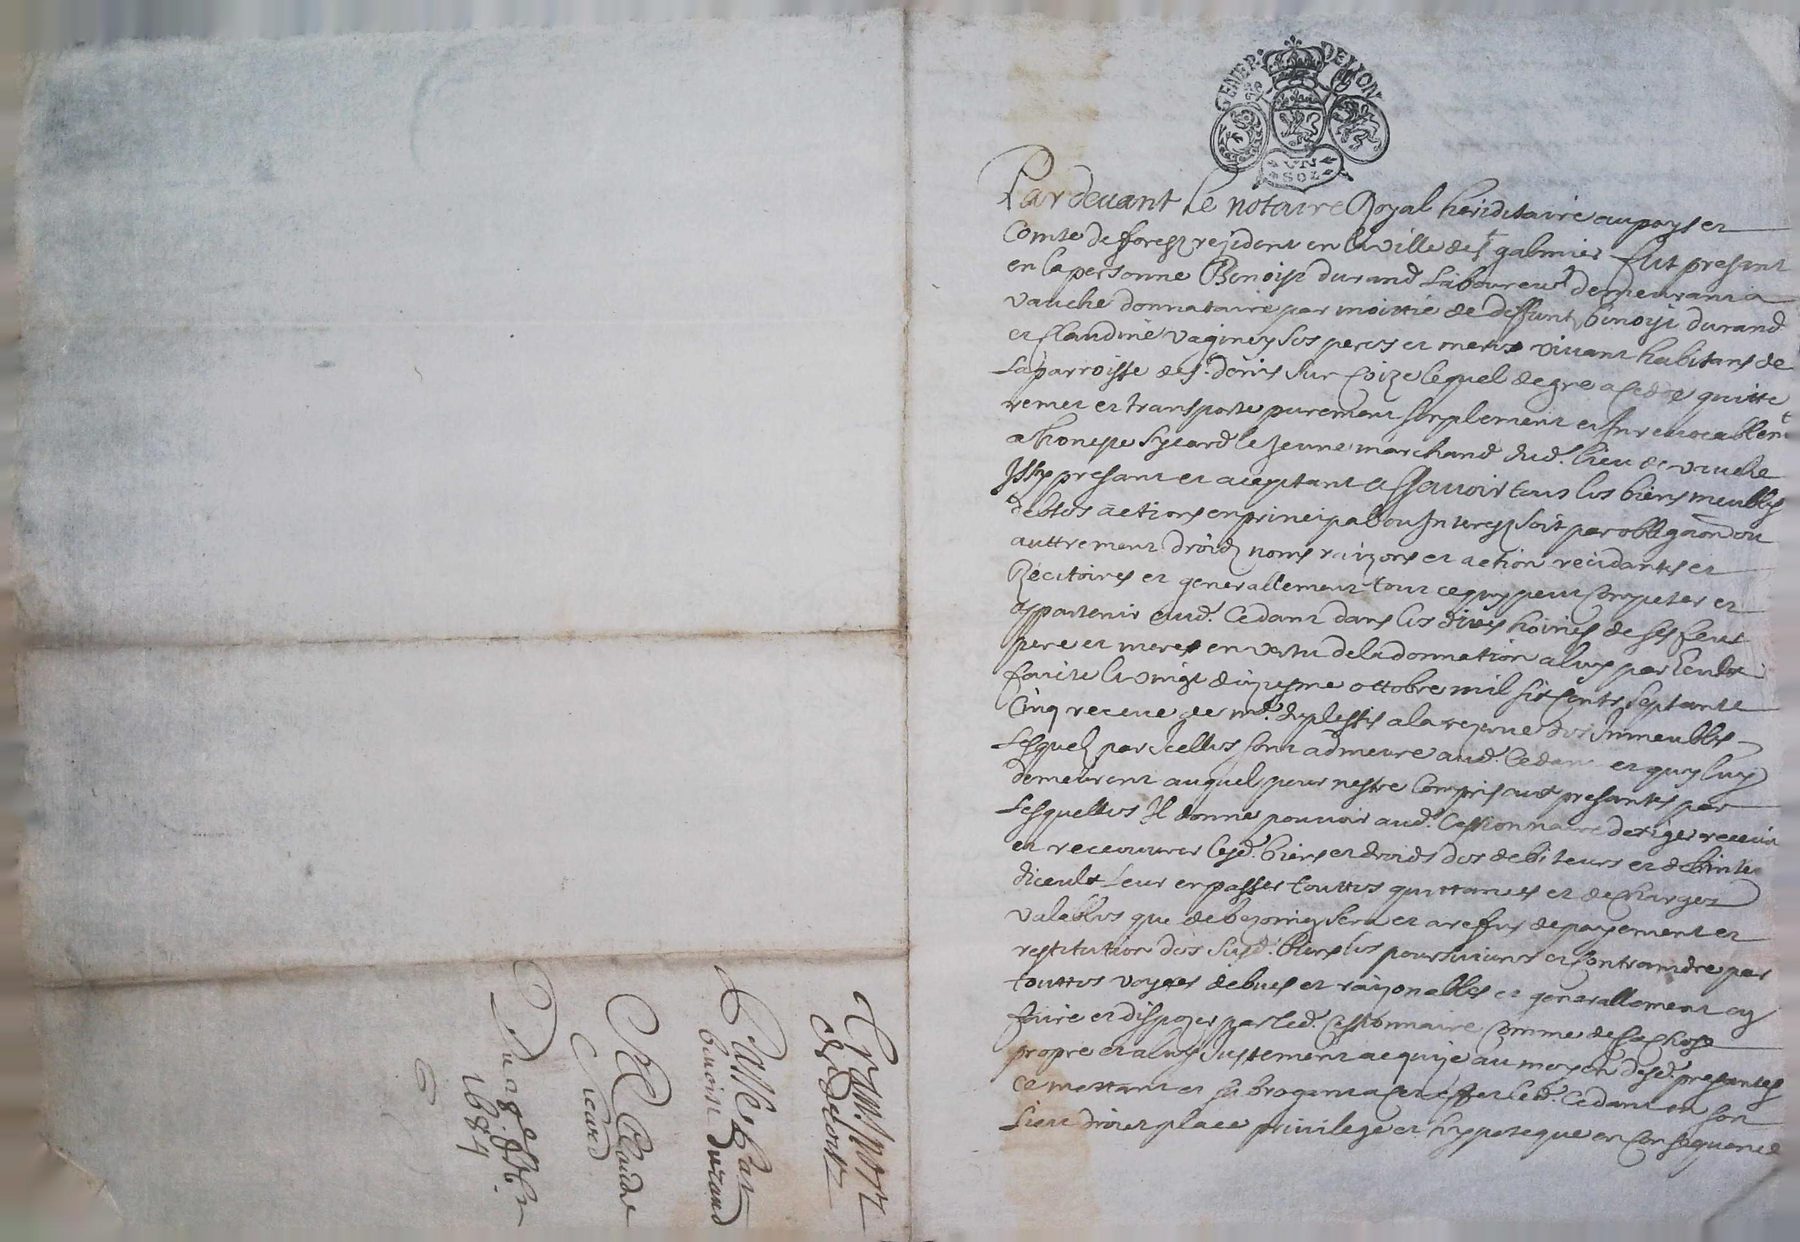 GENER. DE LYON
UN
SOL
Pardevant le notaire Royal hériditaire au pays et
Comte de fforestz rezident en la ville de St galmier fut present
en la personne Benoist durand Laboureur demeurant a
vauche donnataire par moittié de deffunt benoist durand
et Claudine vaginey ses peres et meres vivant habitans de
La parroisse de St. denis sur Coize lequel de gre a cedde quitte
remet et transporte purement simplement et Inrevocablemt
a honeste Sycard le Jeune marchand dud. lieu de vauche
Issy present et aceptant assavoir tous les biens meubles
debtes actions en principal ou Interestz soit par obligaon ou
auttrement droidz noms raizons et action recidantes et
Rezcitoires et generallement tout ce quy peut Competer et
appartenir aud. Cedant dans les dives hoiries de ses feus
pere et mere en vertu de la donnation a luy par Eeulx
faicte le vingt dizyesme ottobre mil six Cents septante
Cinq receue par me. duplessis a la rezerve des Immeubles
Lesquelz par Icelles sont admeure aud. Cedant et quy luy
demeurent auquel pour nestre Compris aud. presantes par
Lesquelles Il donne pouvoir aud. Cessionnaire dexiger recevoir
et recouvrer lesd. biens et droids des debiteurs et
diceulx Leur en passer touttes quittances et descharges
valables que de bezoing sera et a refus de payement et
restitution des susd. biens les poursuivre et Contraindre par
touttes voyes debues et raizonables et generallement en
faire et dispozer par led. Cessionnaire Comme de sa choze
propre et a luy Justement acquize au moyen desd. presentes
Ce mettant et subrogeant a cet effet led. Cedant en son
Lieu droict place privilege et hypoteque en Consequence
Transport
de droit
Passé par
benoist durand
A Claude
Sicard
Du 28e 8bre
1684